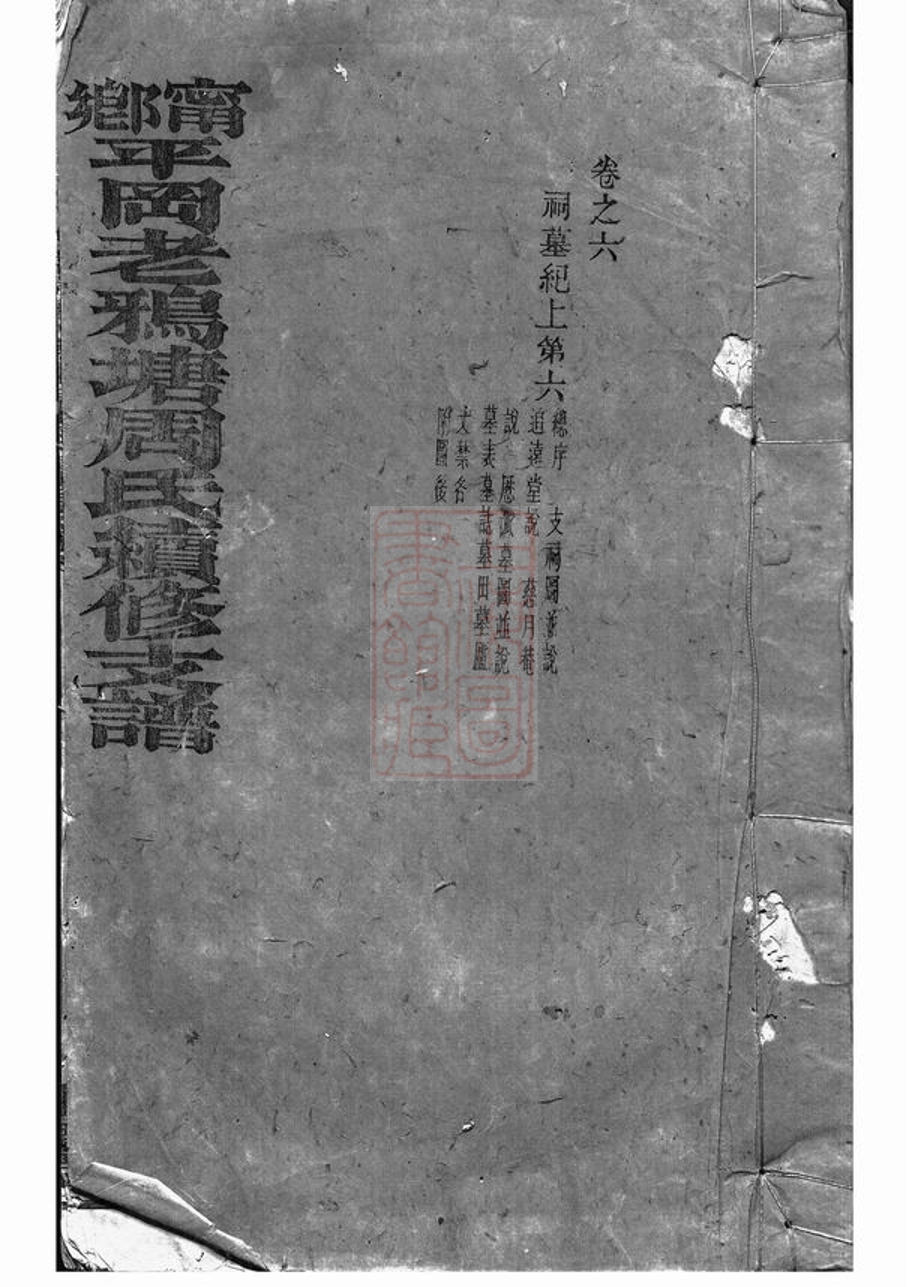 卷之六
祠墓紀上第六
總序 支祠圖並說
追遠堂說 慈月菴
說 歷派墓圖並說
墓表墓誌墓田墓廬
文禁各
附圖後
甯鄉平岡老鴉塘周氏續修支譜